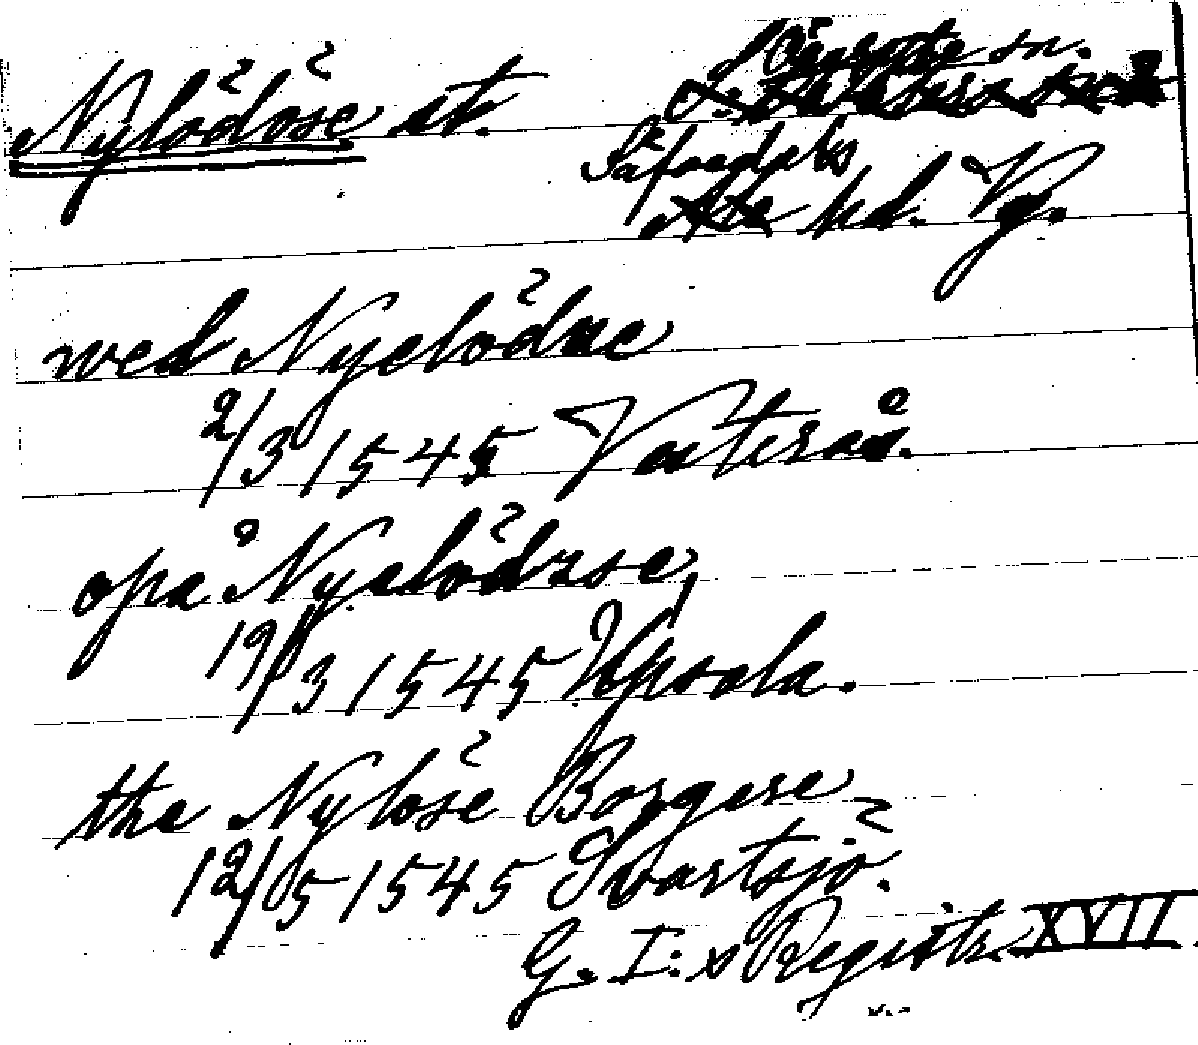 Nylödöse st.
sn.
Säfvedals
hd. Vg.
wed Nyelödze
2/3 1545 Vesterås.
opå Nyelödzse,
19/3 1545 Upsala.
the Nylöse Borgere
12/5 1545 Svartsjö.
G. I:s Registr. XVII.